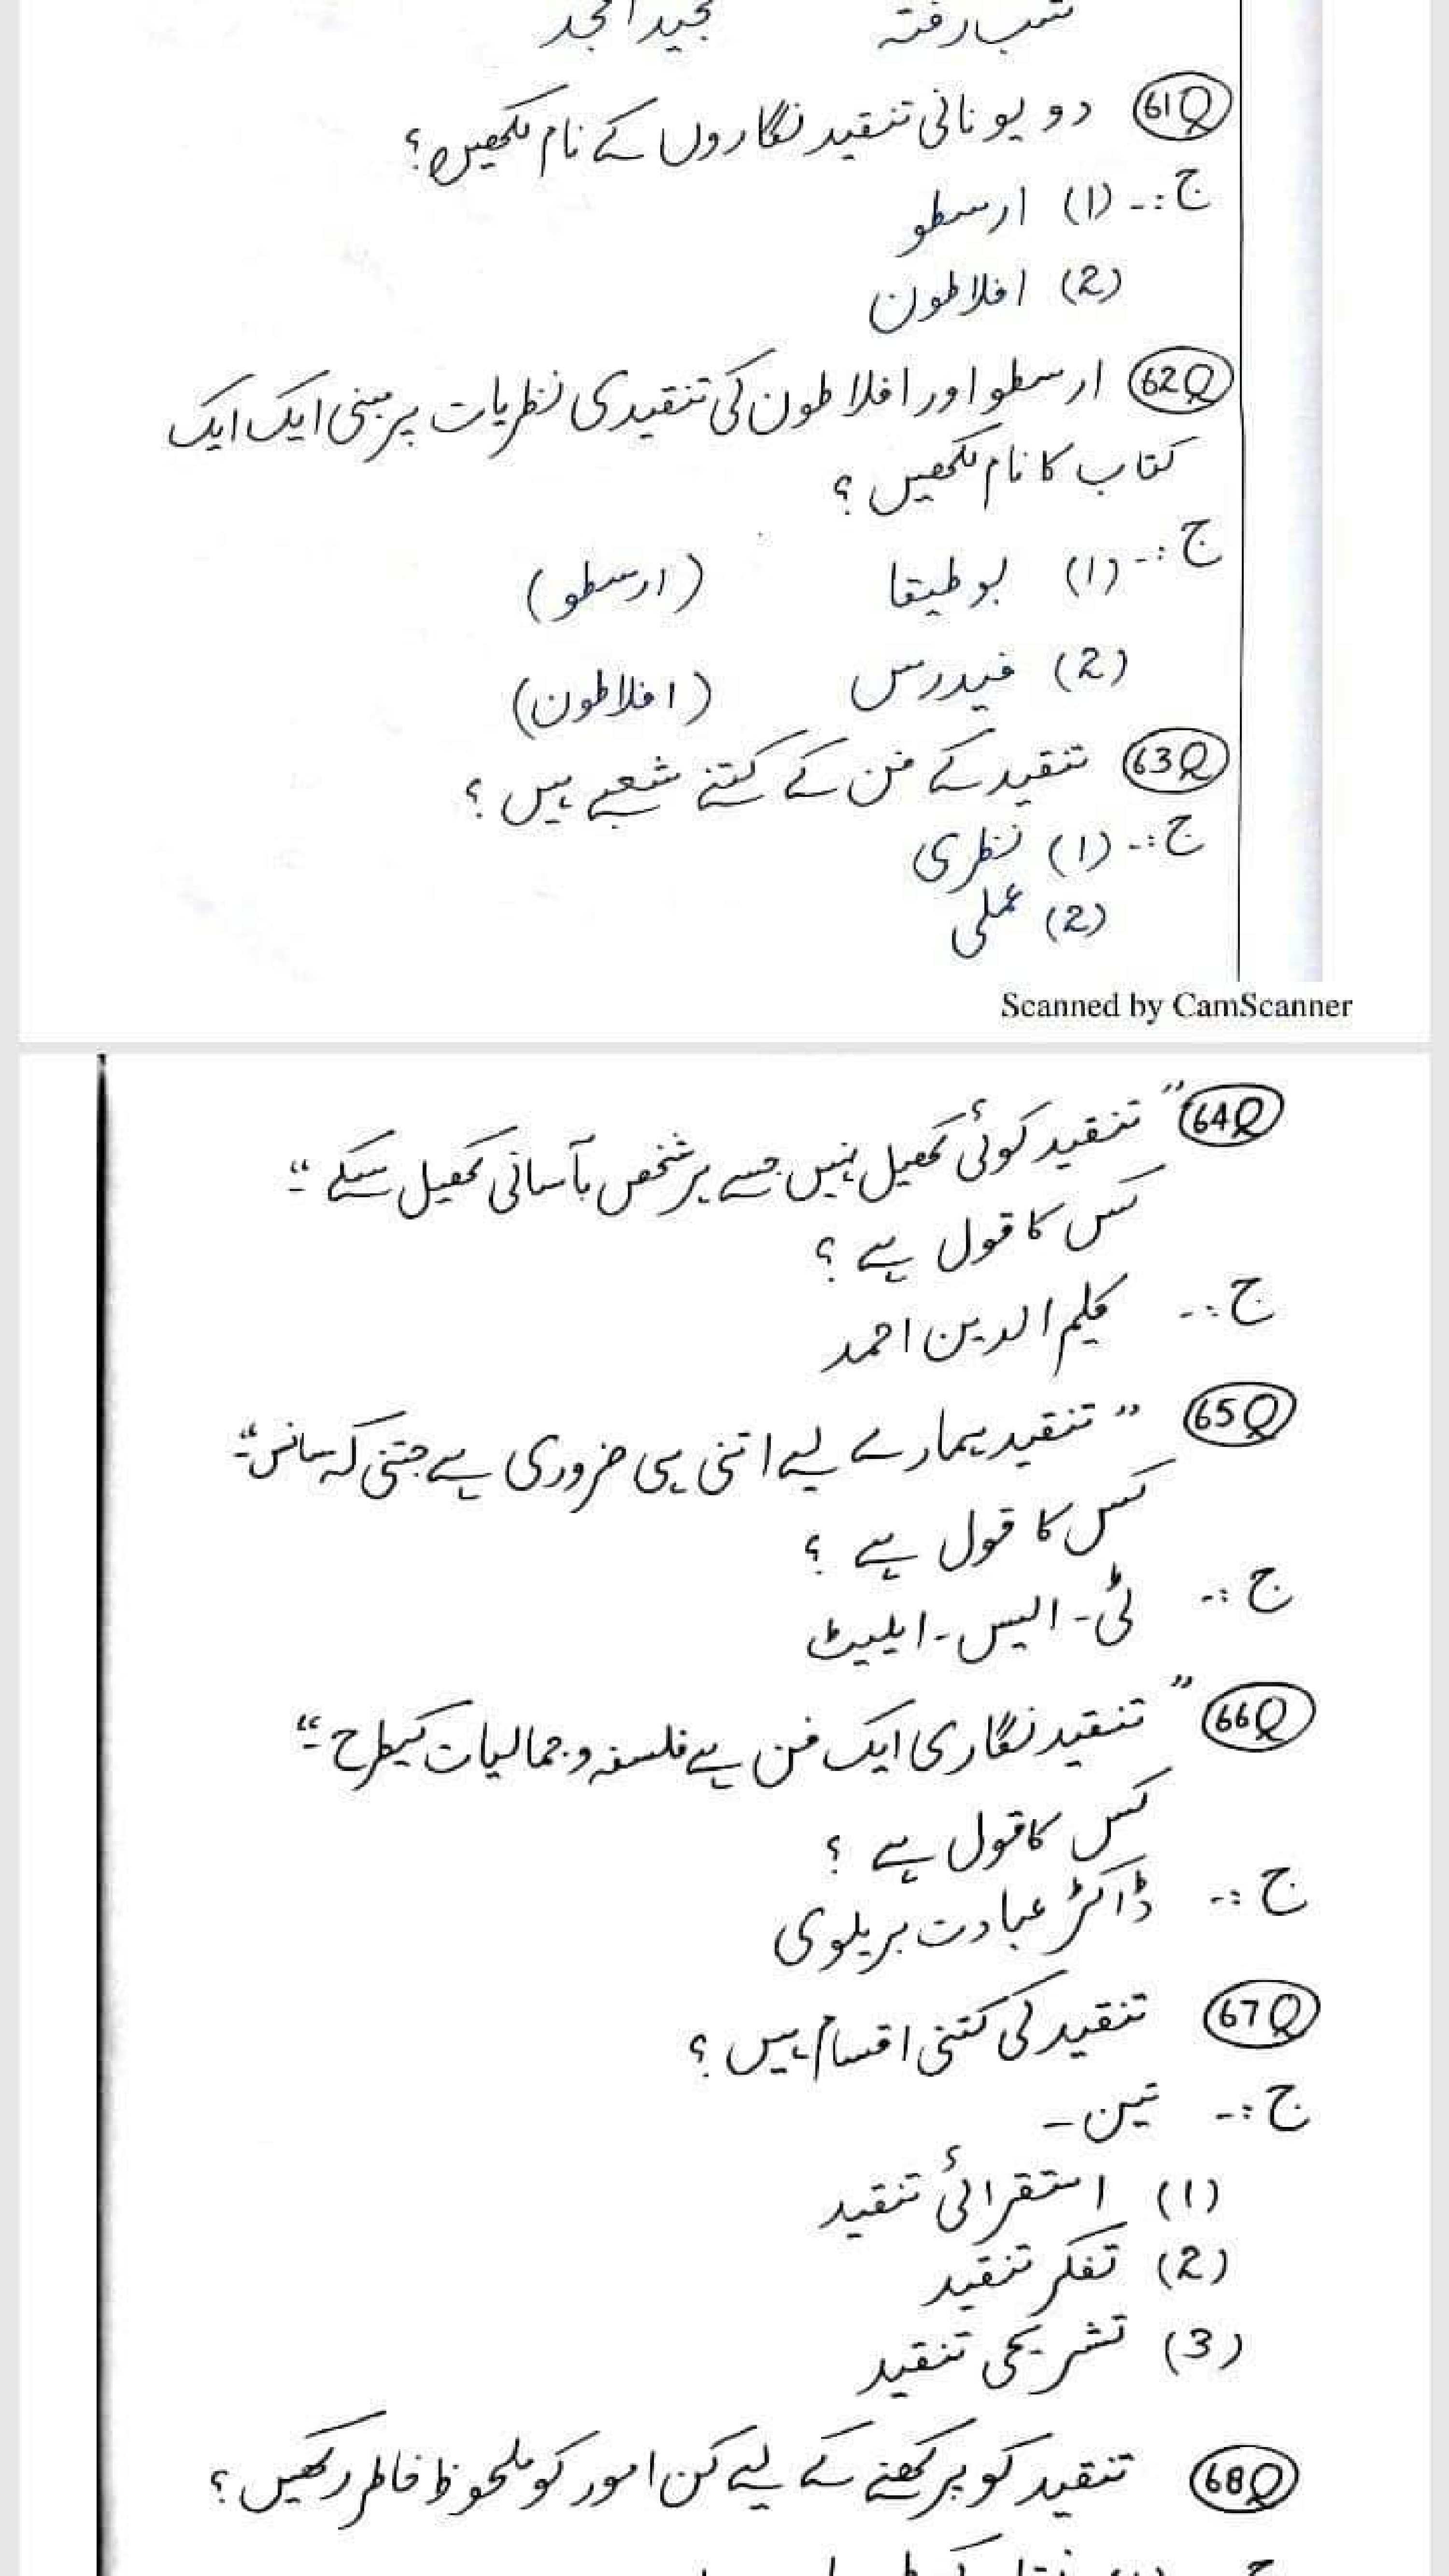 شب رفتہ مجید امجد
61Q دو یونانی تنقید نگاروں کے نام لکھیں؟
ج:۔ (1) ارسطو
(2) افلاطون
62Q ارسطو اور افلاطون کی تنقیدی نظریات پر مبنی ایک ایک
کتاب کا نام لکھیں ؟
ج:۔ (1) بوطیقا (ارسطو)
(2) فیدرس (افلاطون)
63Q تنقید کے فن کے کتنے شعبے ہیں ؟
ج:۔ (1) نظری
(2) عملی
Scanned by CamScanner
64Q "تنقید کوئی کھیل نہیں جسے ہر شخص بآسانی کھیل سکے۔"
کس کا قول ہے ؟
ج:۔ کلیم الدین احمد
65Q "تنقید ہمارے لیے اتنی ہی ضروری ہے جتنی کہ سانس۔"
کس کا قول ہے ؟
ج:۔ ٹی۔ ایس۔ ایلیٹ
66Q "تنقید نگاری ایک فن ہے فلسفہ و جمالیات کیطرح۔"
کس کا قول ہے ؟
ج:۔ ڈاکٹر عبادت بریلوی
67Q تنقید کی کتنی اقسام ہیں ؟
ج:۔ تین۔
(1) استقرائی تنقید
(2) تفکر تنقید
(3) تشریحی تنقید
68Q تنقید کو پرکھنے کے لیے کن امور کو ملحوظ خاطر رکھیں ؟